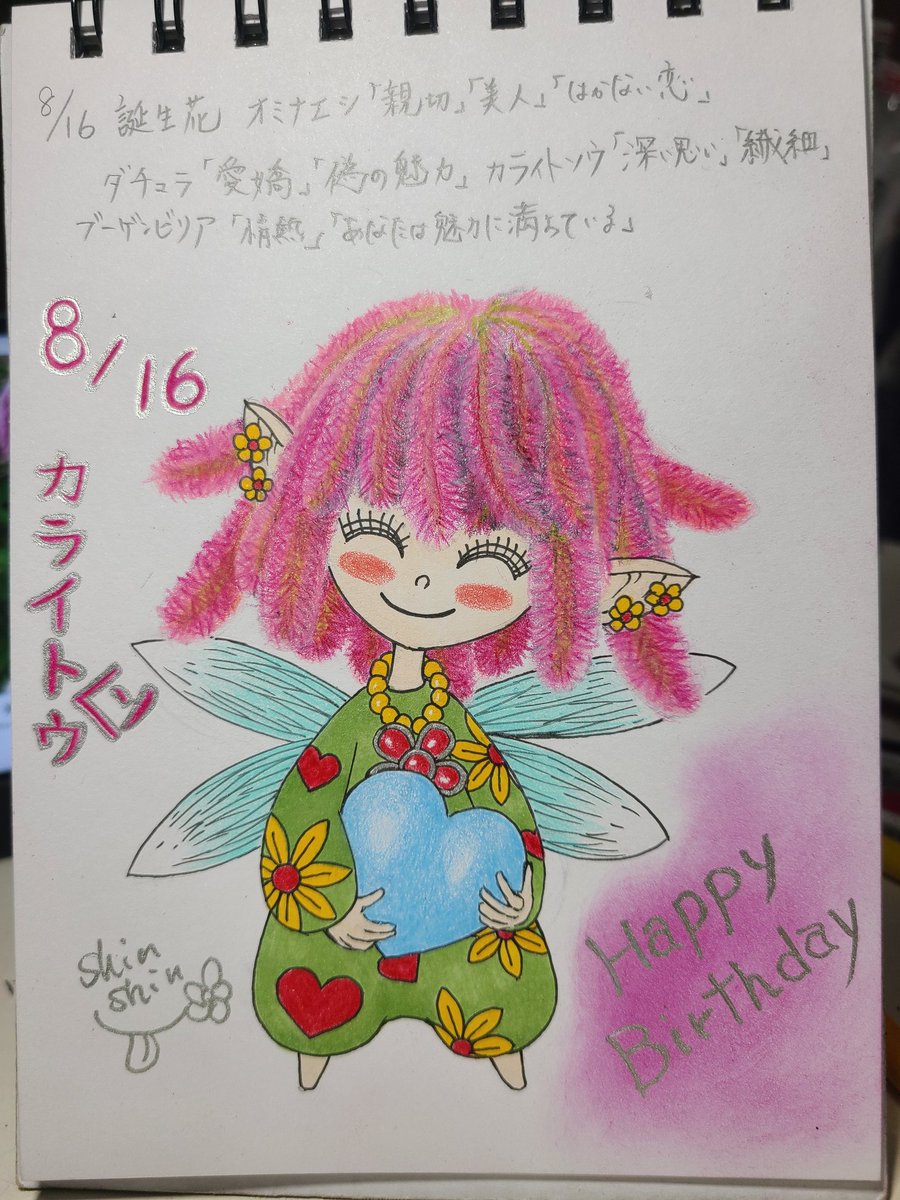 8/16 誕生花 オミナエシ「親切」「美人」「はかない恋」
ダチュラ「愛嬌」「偽の魅力」 カライトソウ「深い思い」「繊細」
ブーゲンビリア「情熱」「あなたは魅力に満ちている」
8/16
カライトソウ
Happy
Birthday
shin
shin